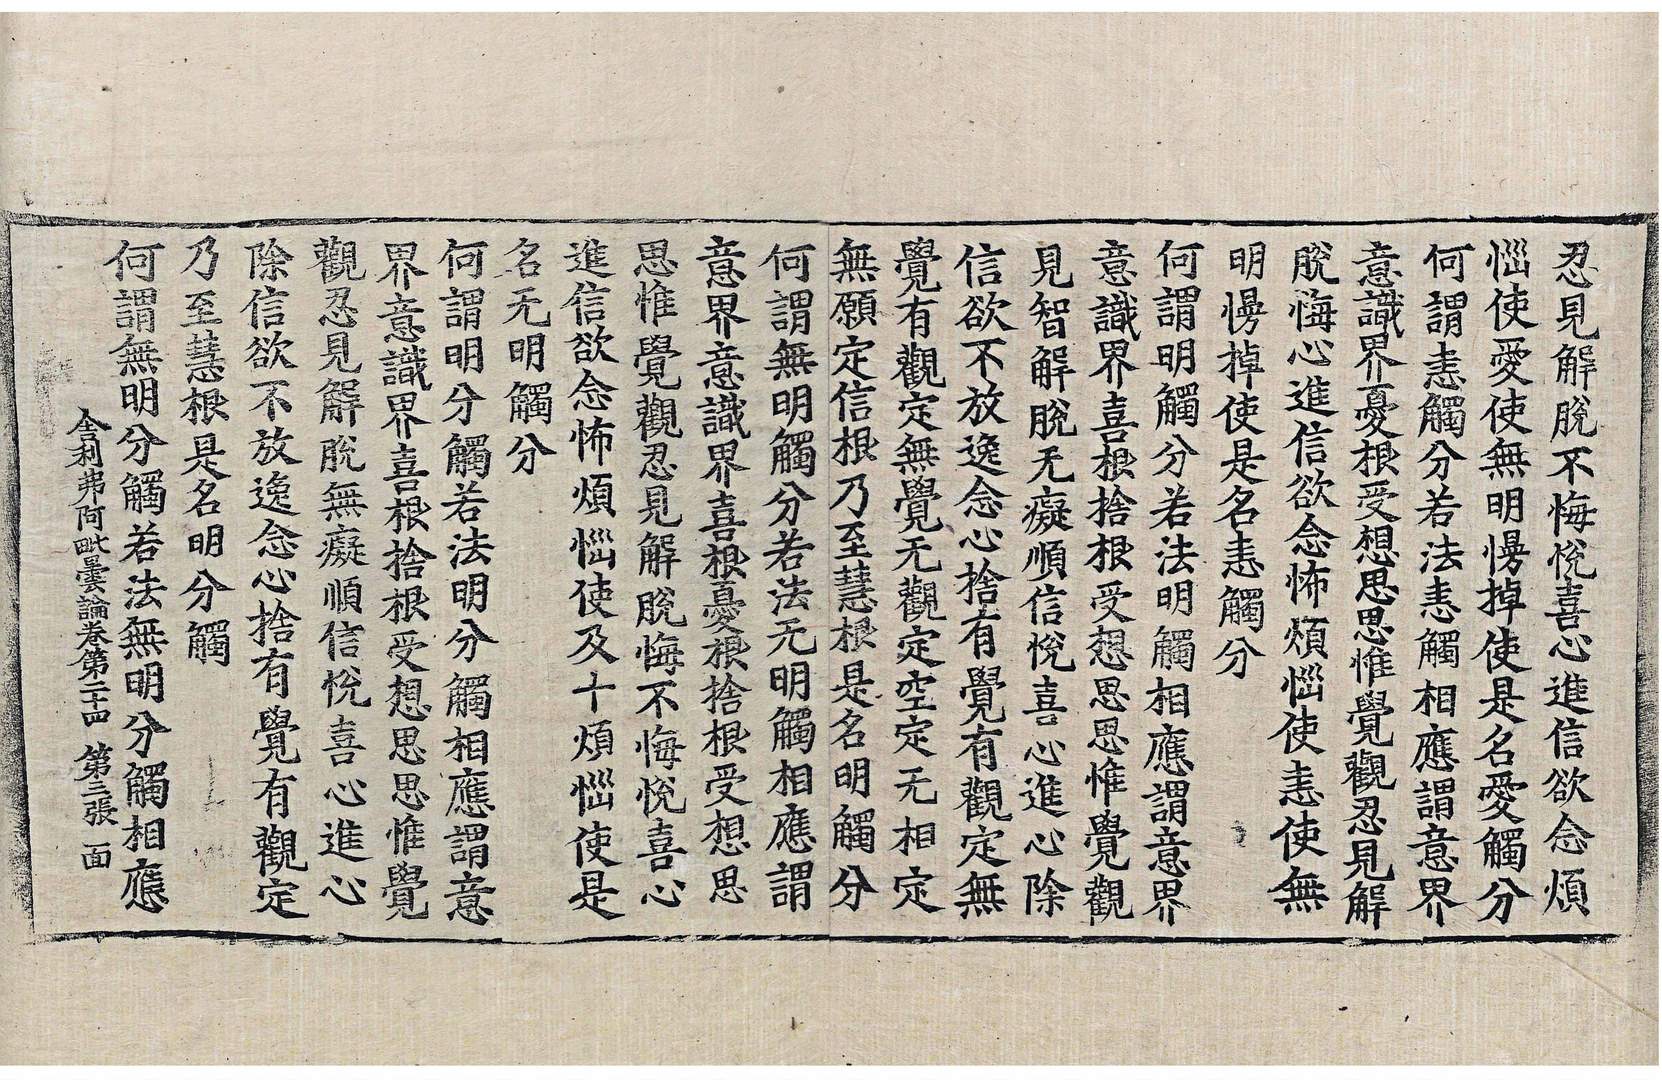 忍見解脫不悔悅喜心進信欲念煩
惱使愛使無明慢掉使是名愛觸分
何謂恚觸分若法恚觸相應謂意界
意識界憂根受想思思惟覺觀忍見解
脫悔心進信欲念怖煩惱使恚使無
明慢掉使是名恚觸分
何謂明觸分若法明觸相應謂意界
意識界喜根捨根受想思思惟覺觀
見智解脫无癡順信悅喜心進心除
信欲不放逸念心捨有覺有觀定無
覺有觀定無覺无觀定空定无相定
無願定信根乃至慧根是名明觸分
何謂無明觸分若法无明觸相應謂
意界意識界喜根憂根捨根受想思
思惟覺觀忍見解脫悔不悔悅喜心
進信欲念怖煩惱使及十煩惱使是
名无明觸分
何謂明分觸若法明分觸相應謂意
界意識界喜根捨根受想思思惟覺
觀忍見解脫無癡順信悅喜心進心
除信欲不放逸念心捨有覺有觀定
乃至慧根是名明分觸
何謂無明分觸若法無明分觸相應
舍利弗阿毗曇論卷第二十四 第三張 面